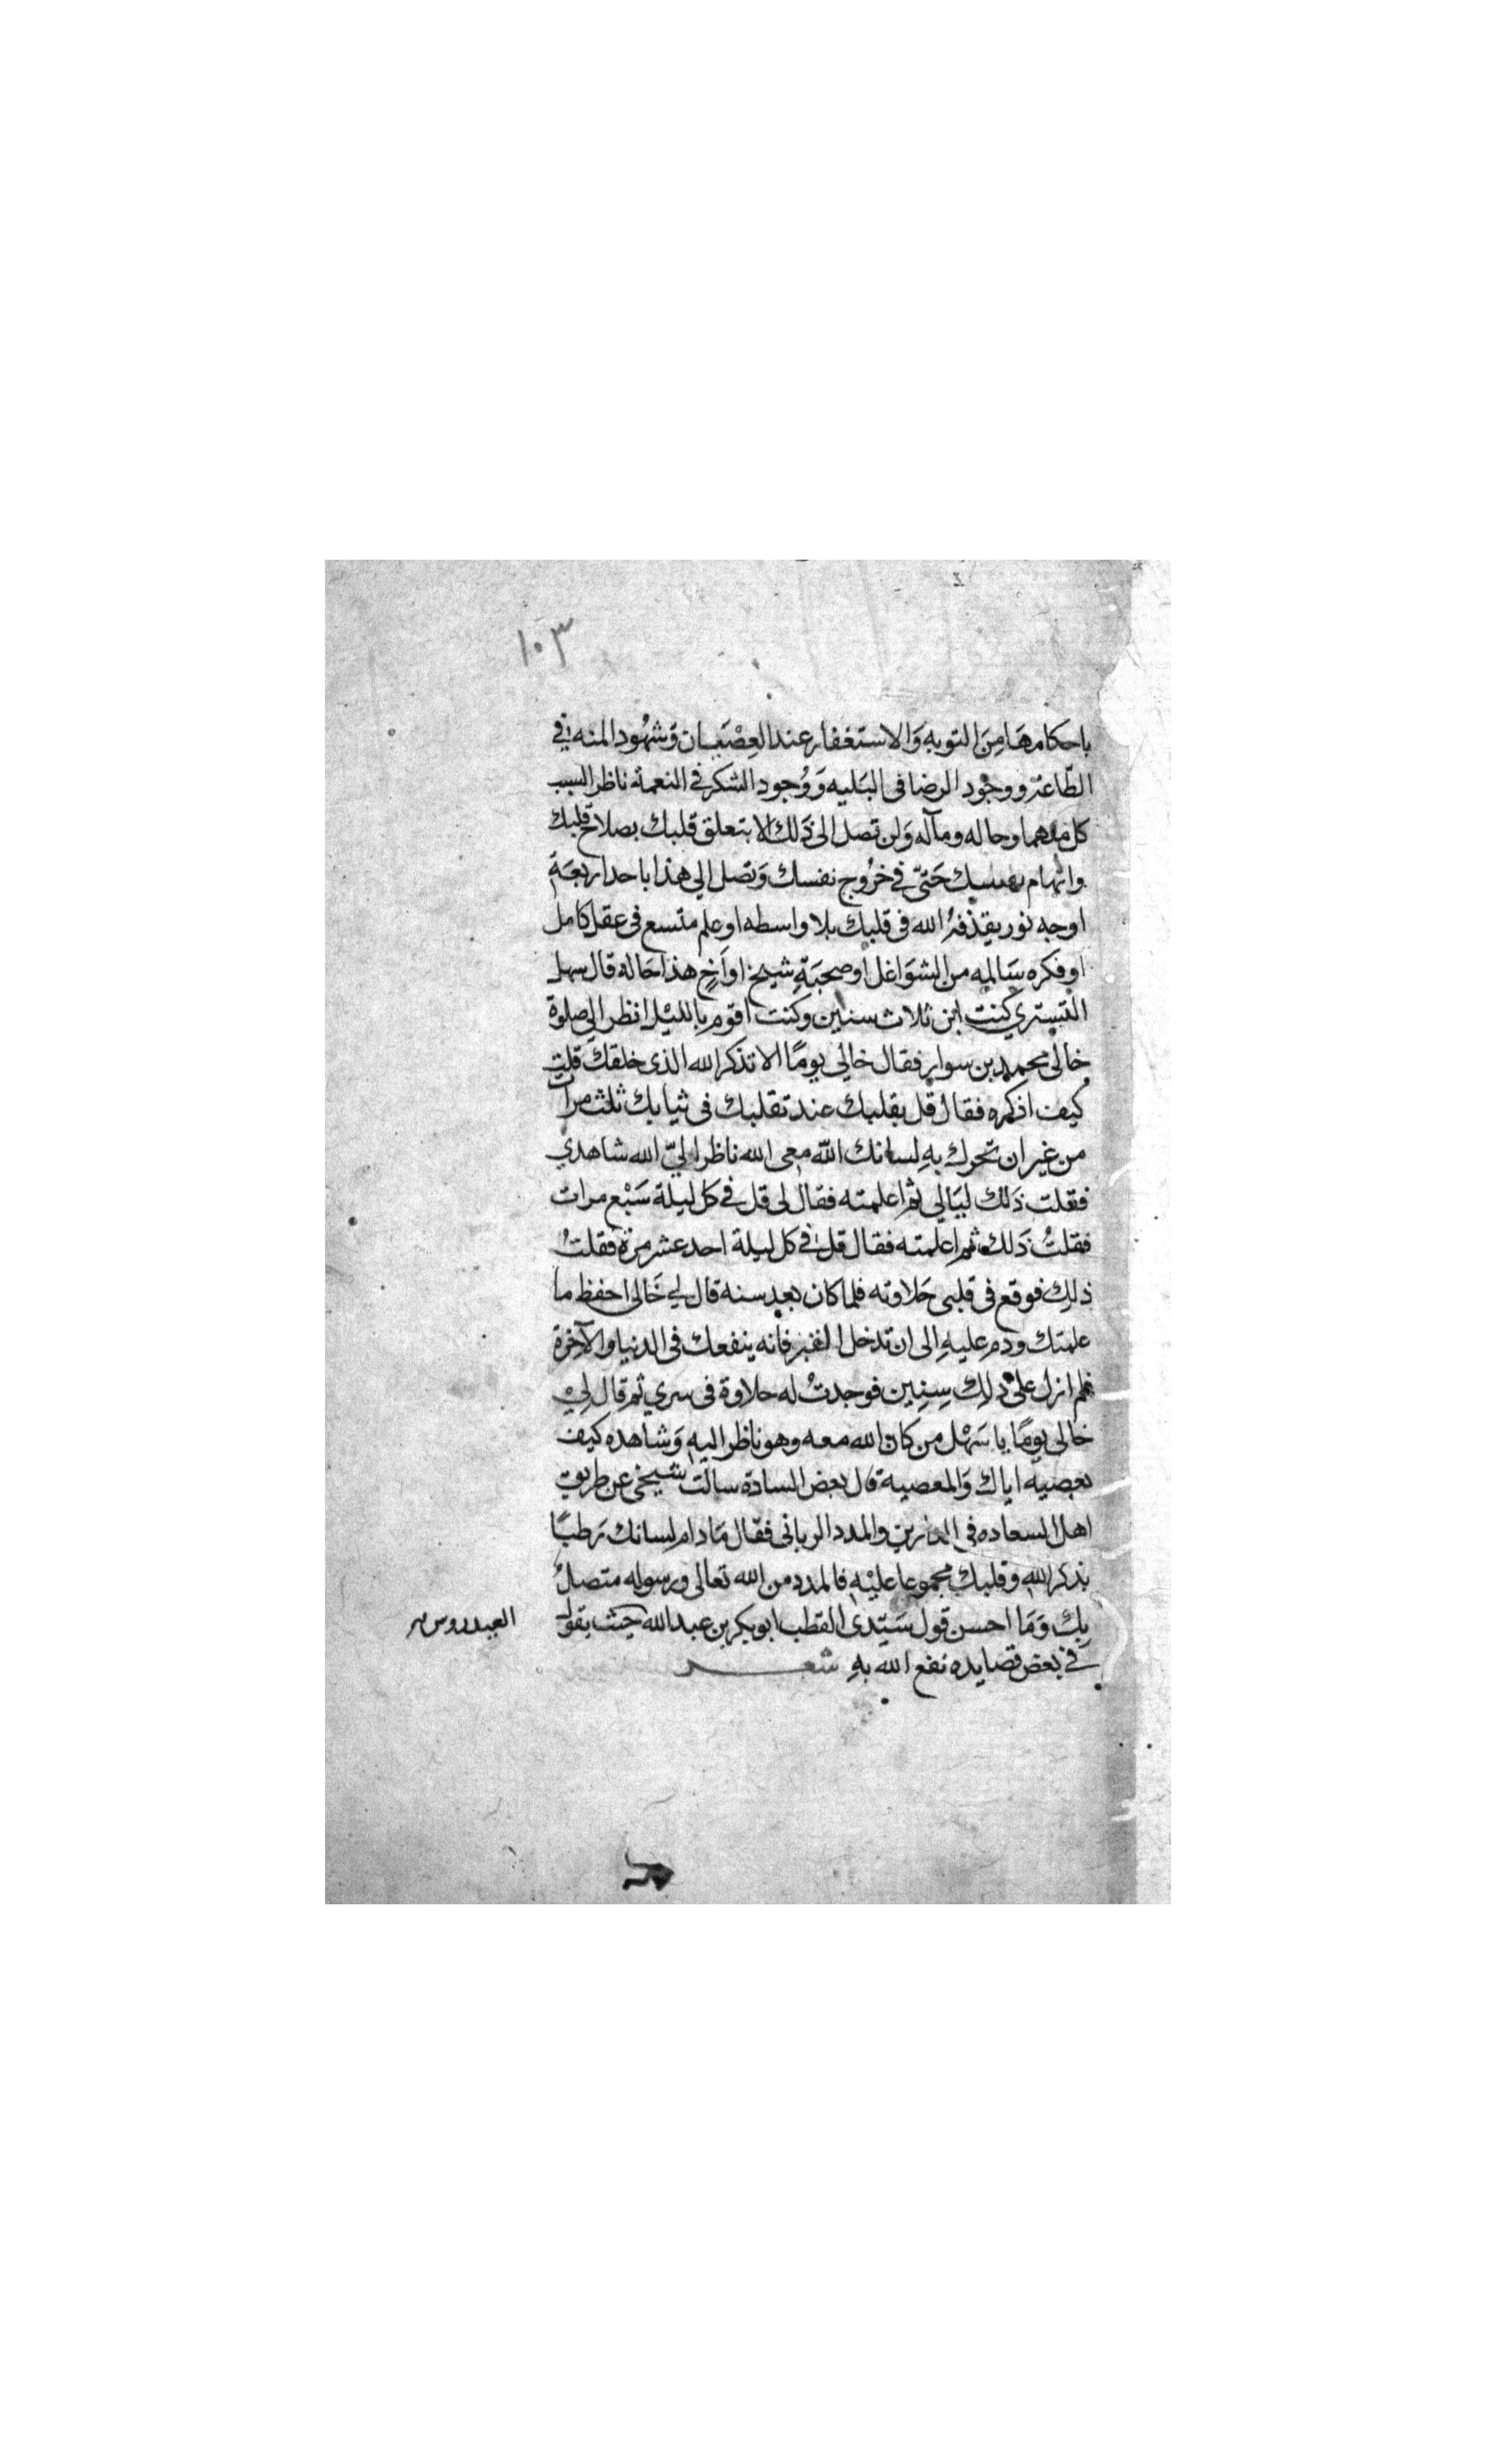 ١٠٣
باحكامهَا مِنَ التوبه وَالاستغفار عند العِصْيَان وَشهُود المنه في
الطّاعة ووجُود الرضا فى البَليه وَوُجود الشكر في النعمة ناظر السبب
كل منهما وحاله ومآله وَلن تصل الى ذَلك الا بتعلق قلبك بصلاح قلبك
واتهام نفسك حَتىّ في خرُوج نفسك وَتصل الي هذا باحد اربعَة
اوجه نور يقذفهُ الله فى قلبك بلا واسطه او علم متسع فى عقل كامل
او فكره سَالمه من الشوَاغل او صحبَةِ شيخ او اَخِ هذا حَاله قال سهل
التستري كنت ابن ثلاث سنين وكنت اقوم بِالليْل انظر الي صلوة
خالى محمد بن سوار فقال خالي يومًا الا تذكر الله الذى خلقك قلت
كيف اذكره فقال قل بقلبك عند تقلبك فى ثيابك ثلث مرات
من غير ان تحرك بهِ لسانك الله معى الله ناظر اليّ الله شاهدي
فقلت ذَلك ليَالي ثم اعلمته فقال لى قل في كل ليلة سَبْع مرات
فقلتُ ذَلك ثم اعلمته فقال قل في كل ليلة احد عشر مرة فقلتُ
ذلِك فوقع فى قلبى حَلاوته فلما كان بعد سنه قال لي خَالى احفظ ما
علمتك ودم عليهِ الى ان تدخل القبر فانه ينفعك فى الدنيا والآخرة
فلم ازل على ذلِك سِنِين فوجدتُ له حلاوة فى سري ثم قال لِيْ
خالى يومًا يا سَهْل من كان الله معه وهو ناظر اليهِ وَشاهده كيف
يعصيه اياك وَالمعصية قال بعض السادة سالت شيخى عن طريق
اهل السعاده فى الدارين والمدد الربانى فقال مَا دام لسانك رَطبًا
بذكر الله وقلبك مجموعا عليْهِ فالمدد من الله تعالى ورسوله متصلٌ
بِك وَمَا احسن قول سَيّدى القطب ابو بكر بن عبد الله حيث يقول
العيدروس
في بعض قصايده نفع الله بهِ شعر